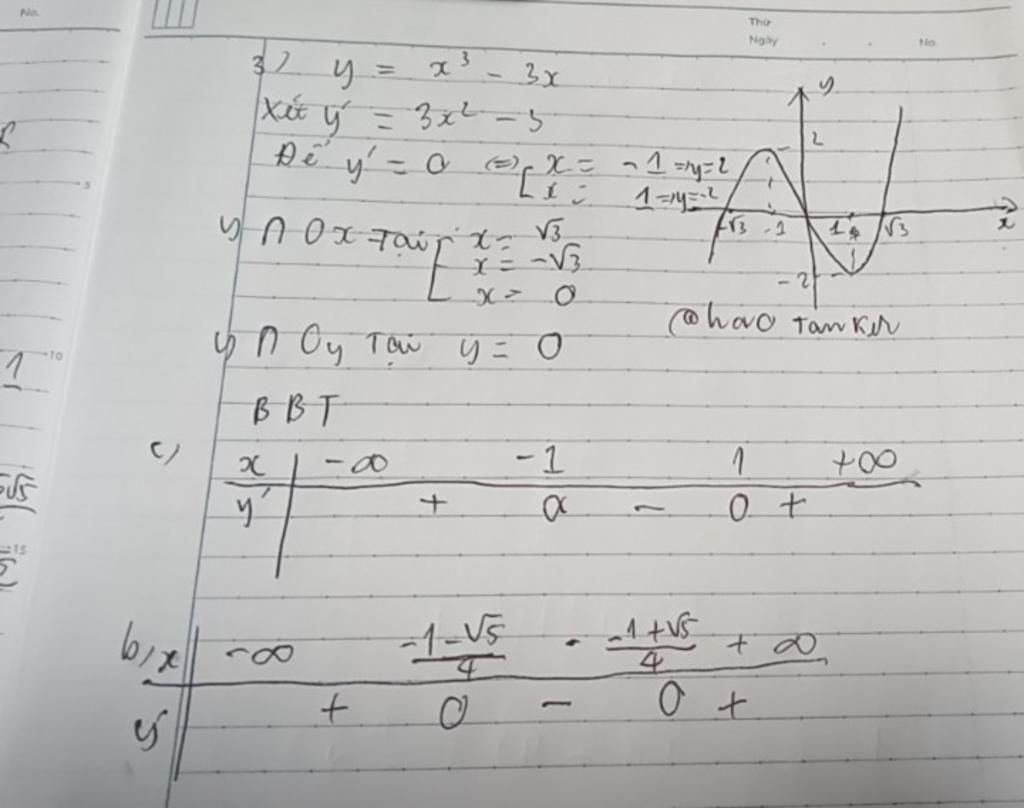 No.
Thứ
Ngày . . No.
3) y = x³ - 3x
Xét y' = 3x² - 3
Để y' = 0 (=) [ x = -1 => y = 2
x = 1 => y = -2
y ∩ Ox Tại [ x = √3
x = -√3
x = 0
y ∩ Oy Tại y = 0
y
2
-√3 -1 1 √3 x
-2
BBT
c)
x -∞ -1 1 +∞
y' + 0 - 0 +
b, x -∞ (-1-√5)/4 - (-1+√5)/4 +∞
y' + 0 - 0 +
5
10
15
1